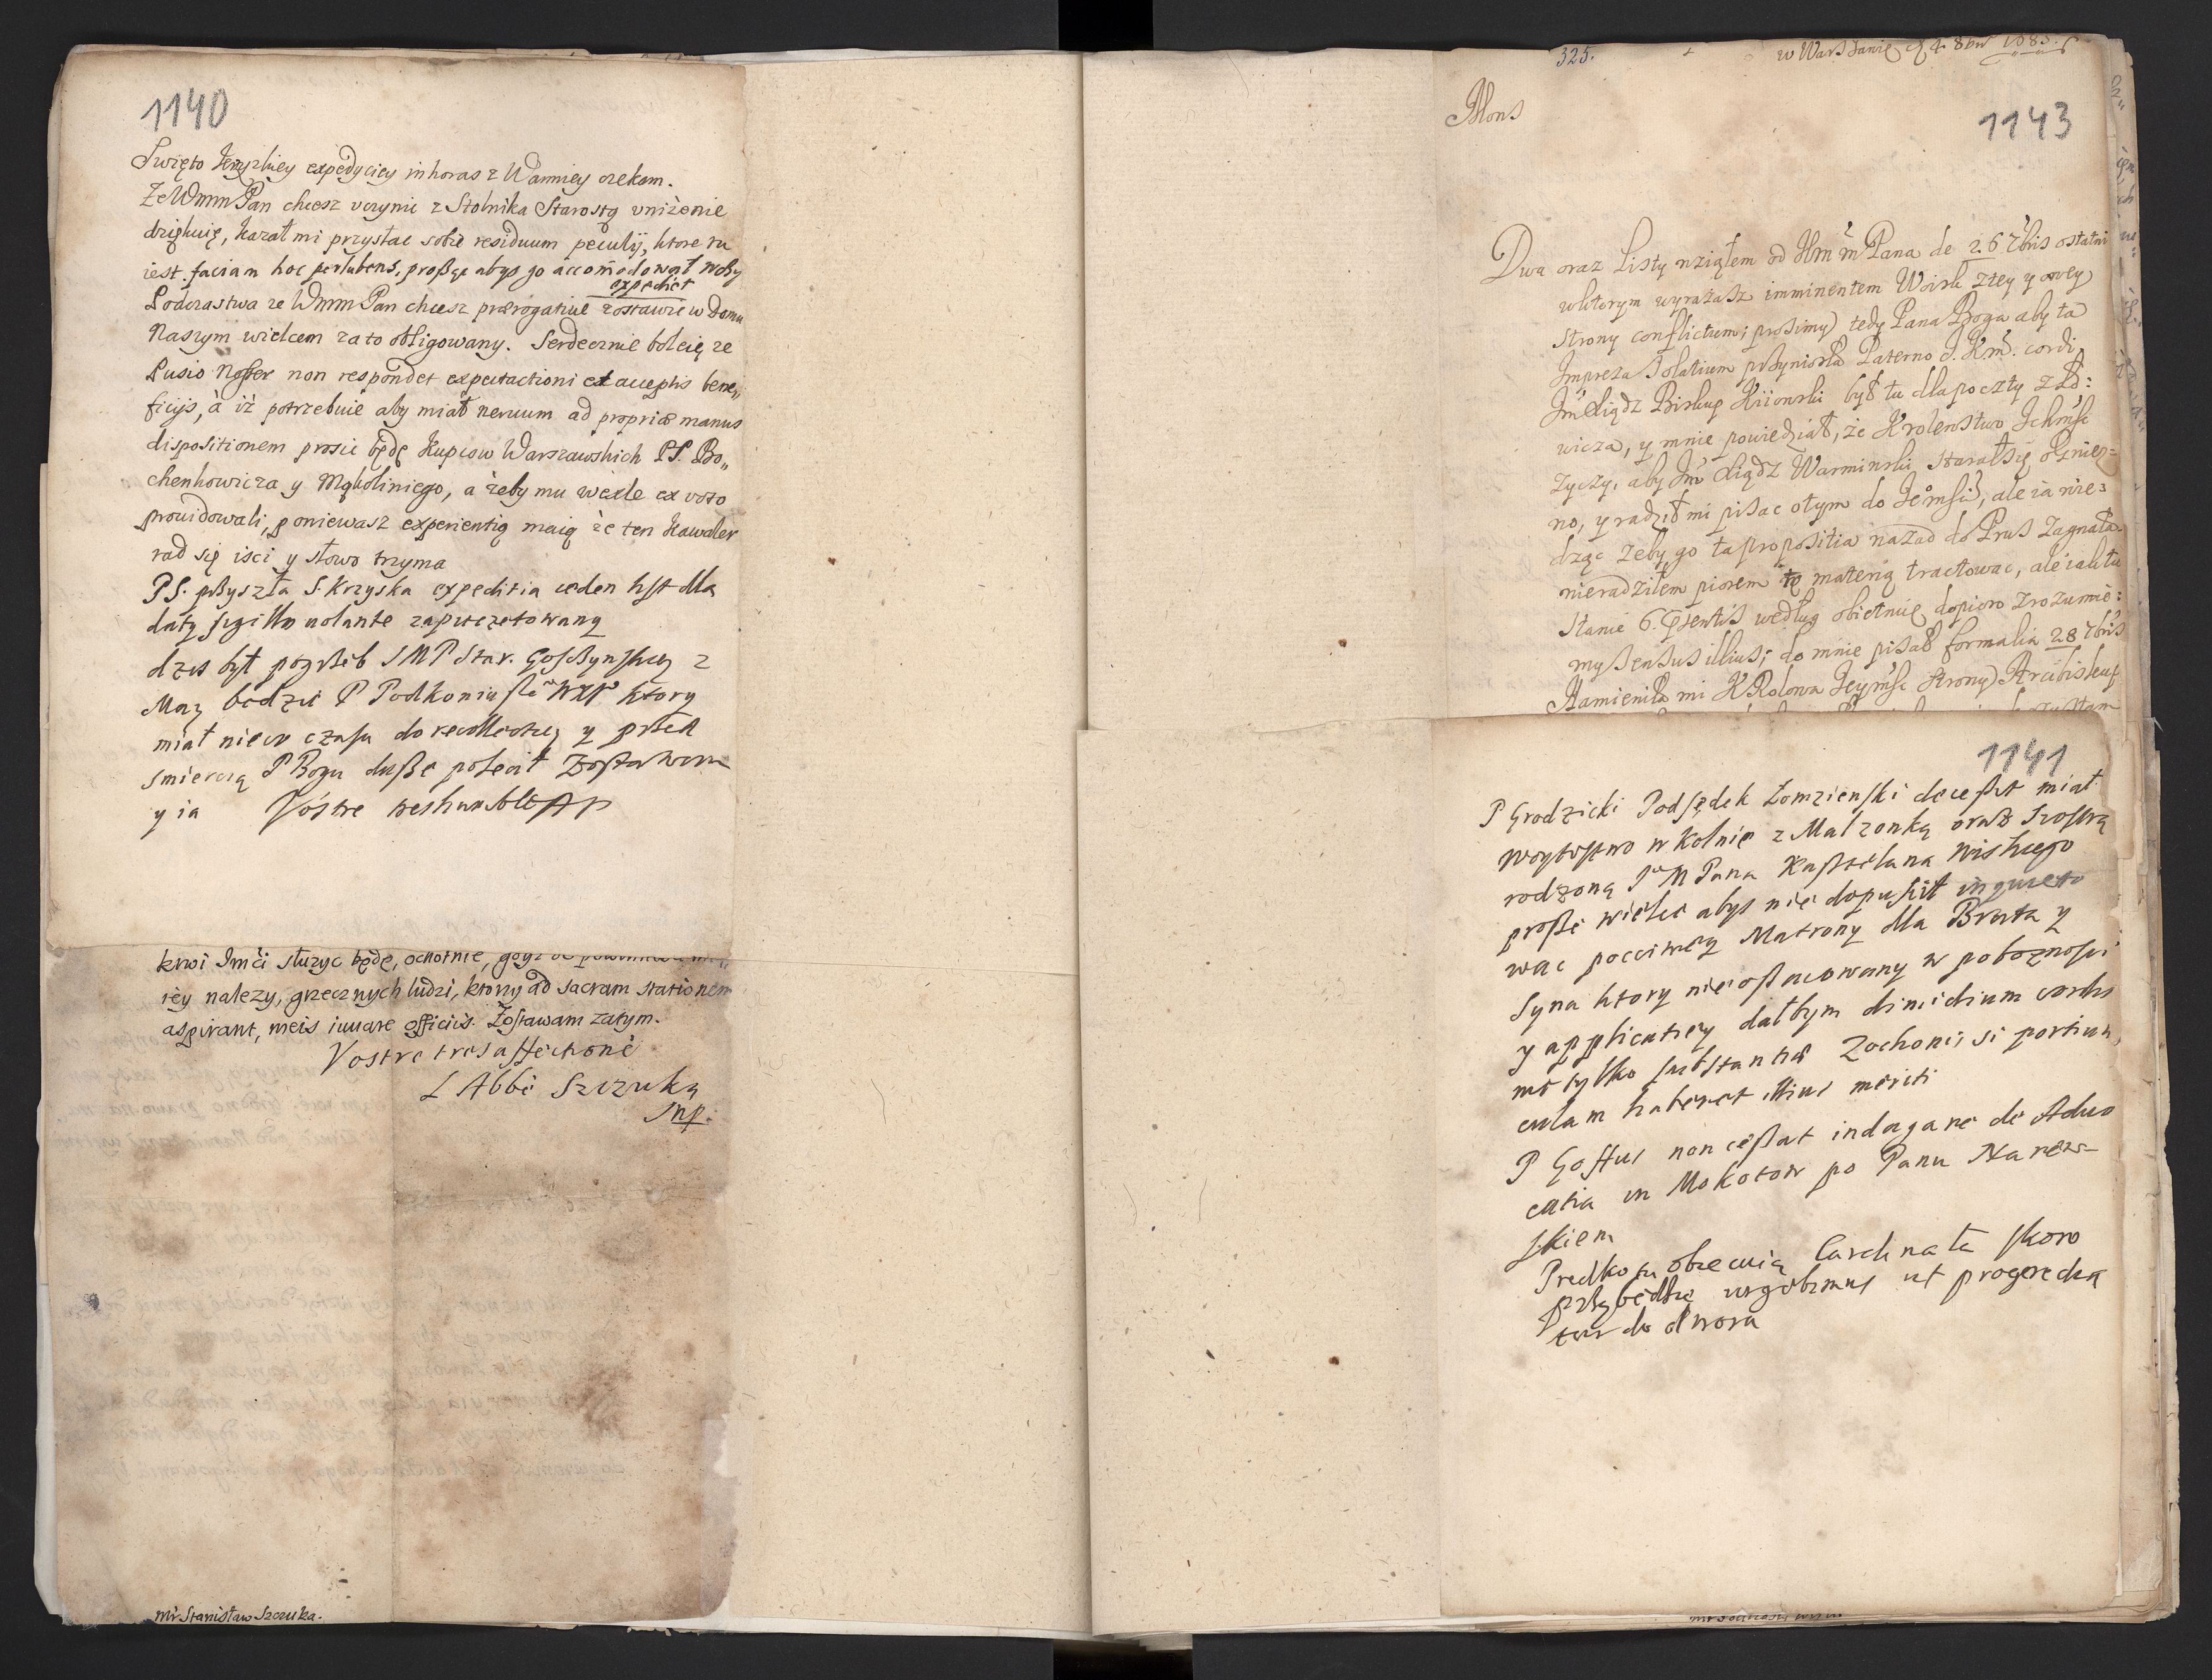 1140
Swięto Krzyzkiey expedyciey in horas z Wanniey czekam.
Ze WmmPan chcesz uczynic z Stolnika Starostą unizenie
dziękuię, kazał mi przysłac sobie residuum peculij, ktore tu
iest. faciam hoc perlubens, proszę abys go accomodował
expediet
Podczastwa ze WmmPan chcesz praerogatiue zostawic w Domu
Naszym wielcem za to obligowany. Serdecznie boleię ze
Lusio Noster non respondet expectactioni et acceptis bene„
ficijs, à iż potrzebuie aby miał neruum ad propriae manus
dispositionem prosic będę Kupcow Warszawskich PP. Bo„
chenkowicza y Mąkoliniego, a żeby mu wexle ex voto
prouidowali, poniewasz experientią maią że ten Kawaler
rad się isci y słowo trzyma
PS. przyszła S. Krzyska expeditia ieden list dla
daty sigillo uolante zapieczetowany
dzis był pogrzeb JMP Star. Goszynskiey z
Mar. bedzie P Podkoniusze WXL ktory
miał nieco czasu do recollectiey y przed
smiercią P Bogu dusze polecił Zostawam
y ia Vostre
krwi Jmći służyc będę, ochotnie, gdyz
iey nalezy, grzecznych ludzi, ktorzy ad sacram stationem
aspirant, meis iuuare officiis. Zostawam zatym.
Vostre tres affectioné
L Abbé Szczuka
mp.
Mr Stanisław Szczuka.
325.
w Warszawie d 4. 8bris 1685.
Mons
1143
Dwa oraz Listy wziąłem od Wm̃ m Pana de 26 7bris ostatni
wktorym wyrażasz imminentem Woisk ztey y owey
strony conflictum; prosimy tedy Pana Boga aby ta
Impreza solatium przyniosła Paterno J. Km̃. cordi,
Jm̃ Xiądz Biskup Kiiowski był tu dla poczty z
wicza, y mnie powiedział, że Krolewstwo Ichmśc
zyczy, aby Jm̃ Xiądz Warminski starał się o Gniez=
no, y radził mi pisac o tym do Jemsci, ale ia wie=
dząc zeby go ta propositia nazad do Prus zagnała
nieradziłem piorem tę materią tractowac, ale iak tu
stanie 6. Praesentis według obietnicę, dopiero zrozumie=
my sensus illius; do mnie pisał formalia 28 7bris
Namieniła mi KRolowa Jeymśc strony Arcibiskup
1141
P Grodzicki Podsędek Łomzienski decessit miał
Woytostwo w Kolnie z Malzonką oraz Siostrą
rodzoną J M Pana Kasztelana Wiskiego
prosze wielce abys nie dopuscił inquieto
wac pocciwey Matrony dla Brata y
Syna ktory nieoszacowany w poboznosci
y applicatiey dałbym dimidium corks
me tylko substantia Zochonii si portiun„
culam haberet illius meriti
P Gossus non cessat indagare de Aduo
catia in Mokotow po Panu Narew=
skiem
Predko tu obiecuią Cardinała skoro
przybedzie urgebimus ut progredia
tur do dwora